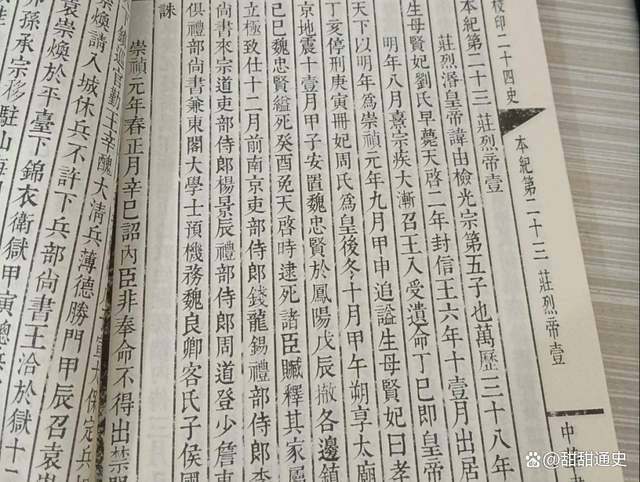 校印二十四史
本紀第二十三 莊烈帝壹
中
本紀第二十三 莊烈帝壹
莊烈愍皇帝諱由檢光宗第五子也萬歷三十八年
生母賢妃劉氏早薨天啓二年封信王六年十壹月出居
明年八月熹宗疾大漸召王入受遺命丁巳即皇帝
天下以明年為崇禎元年九月甲申追謚生母賢妃曰孝
丁亥停刑庚寅冊妃周氏為皇後冬十月甲午朔享太廟
京地震十壹月甲子安置魏忠賢於鳳陽戊辰撤各邊鎮
己巳魏忠賢縊死癸酉免天啓時逮死諸臣贓釋其家屬
立極致仕十二月前南京吏部侍郎錢龍錫禮部侍郎李
尚書來宗道吏部侍郎楊景辰禮部侍郎周道登少詹事
俱禮部尚書兼東閣大學士預機務魏良卿客氏子侯國
誅
崇禎元年春正月辛巳詔內臣非奉命不得出禁門
大保定兵
巡官勤王辛醜大清兵薄德勝門甲辰召袁崇
崇煥請入城休兵不許下兵部尚書王洽於獄十二
袁崇煥於平臺下錦衣衛獄甲寅總兵
孫承宗移駐山海
@甜甜通史